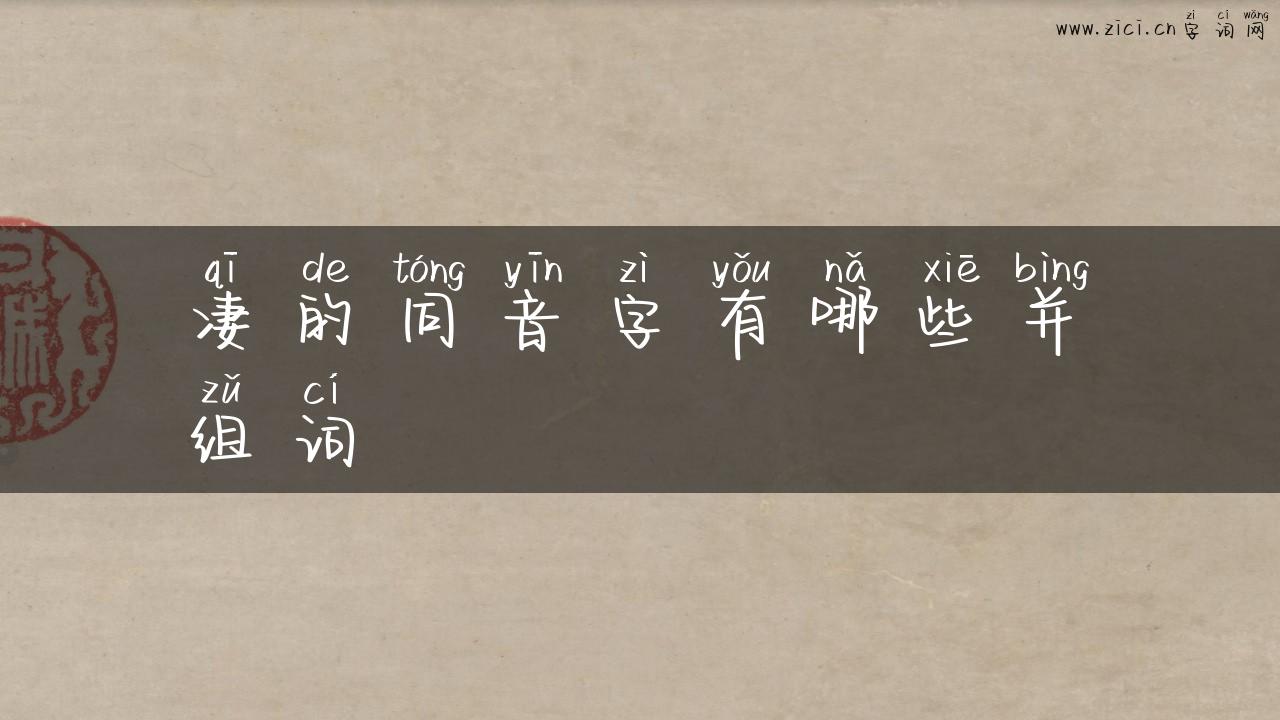 zì cí wǎng
www.zici.cn 字词网
qī de tóng yīn zì yǒu nǎ xiē bìng
凄的同音字有哪些并
zǔ cí
组词